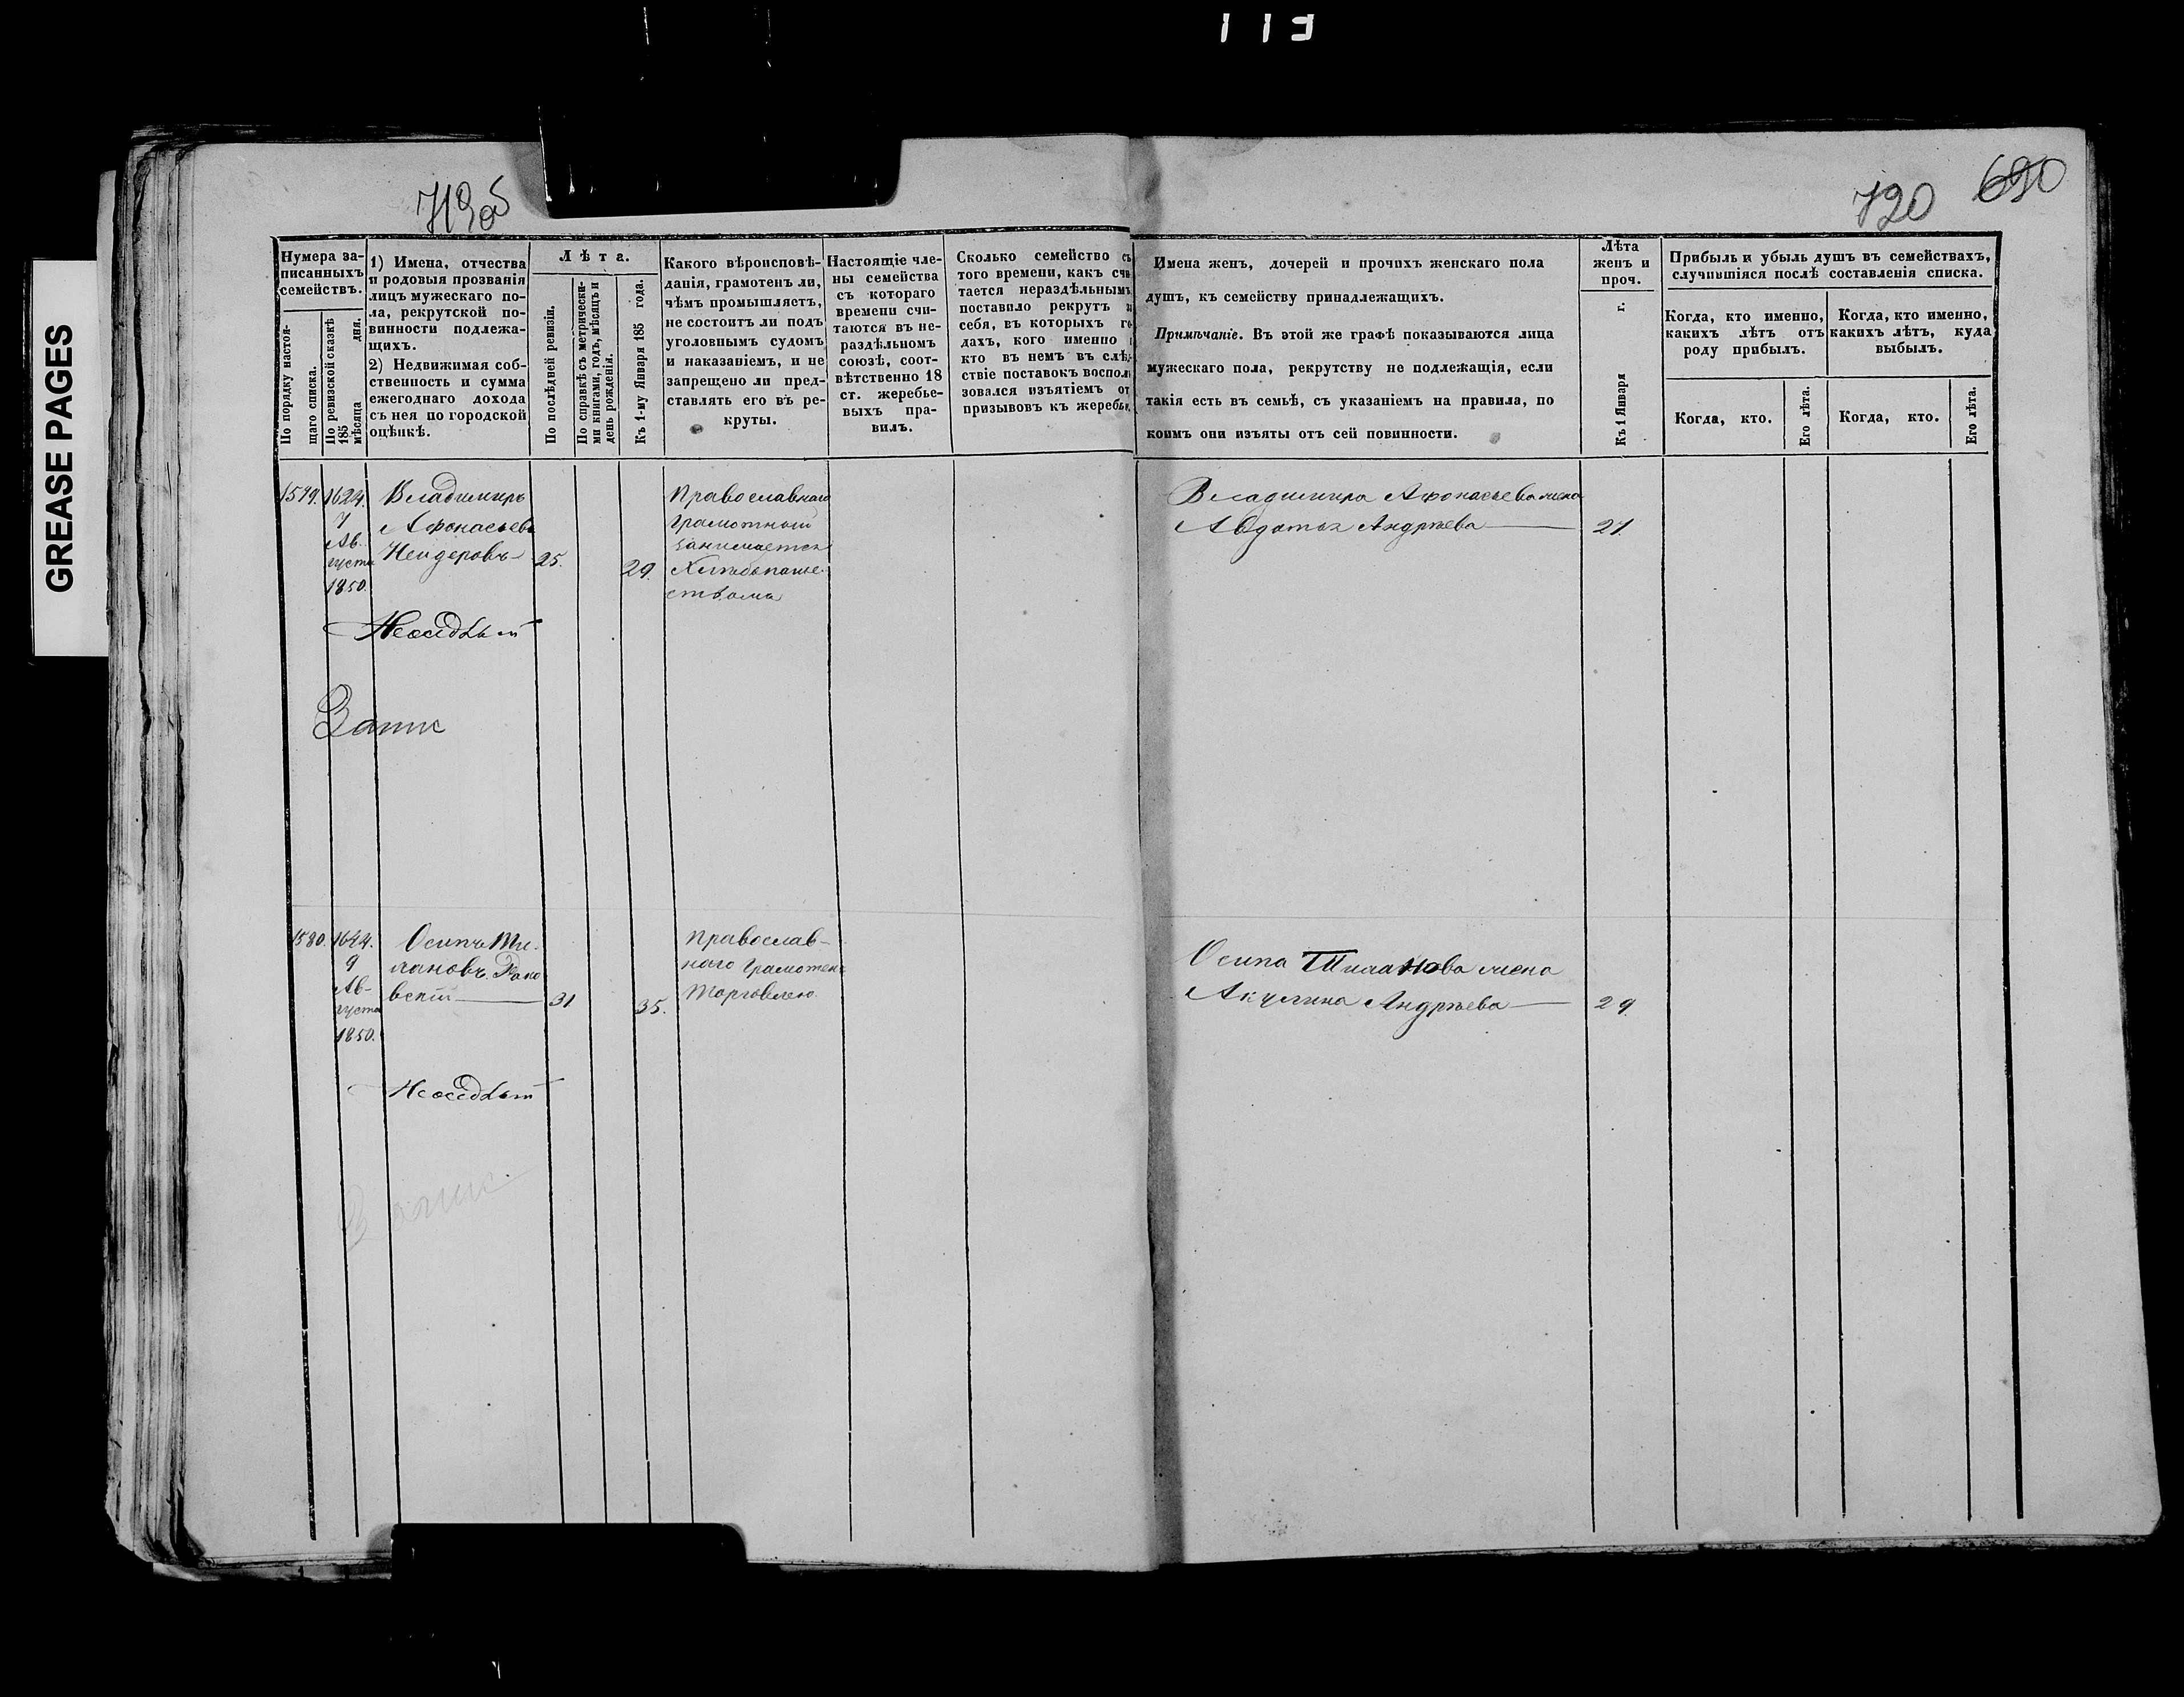 113
GREASE PAGES
719об
720
690
Нумера за-
писанныхъ
семействъ.
По порядку настоя-
щаго списка.
По ревизской сказкѣ
185
мѣсяца дня.
1) Имена, отчества
и родовыя прозванія
лицъ мужескаго по-
ла, рекрутской по-
винности подлежа-
щихъ.
2) Недвижимая соб-
ственность и сумма
ежегоднаго дохода
съ нея по городской
оцѣнкѣ.
Лѣта.
По послѣдней ревизіи.
По справкѣ съ метрически-
ми книгами, годъ, мѣсяцъ и
день рожденія.
Къ 1-му Января 185 года.
Какого вѣроисповѣ-
данія, грамотенъ ли,
чѣмъ промышляетъ,
не состоитъ ли подъ
уголовнымъ судомъ
и наказаніемъ, и не
запрещено ли пред-
ставлять его въ ре-
круты.
Настоящіе чле-
ны семейства
съ котораго
времени счи-
таются въ не-
раздѣльномъ
союзѣ, соот-
вѣтственно 18
ст. жеребье-
выхъ пра-
вилъ.
Сколько семейство съ
того времени, какъ счи-
тается нераздѣльнымъ
поставило рекрутъ за
себя, въ которыхъ го-
дахъ, кого именно и
кто въ немъ въ слѣд-
ствіе поставокъ воспол-
зовался изъятіемъ от
призывовъ къ жеребью.
Имена женъ, дочерей и прочихъ женскаго пола
душъ, къ семейству принадлежащихъ.
Примѣчаніе. Въ этой же графѣ показываются лица
мужескаго пола, рекрутству не подлежащія, если
такія есть въ семьѣ, съ указаніемъ на правила, по
коимъ они изъяты отъ сей повинности.
Лѣта
женъ и
проч.
Къ 1 Января г.
Прибыль и убыль душъ въ семействахъ,
случившіяся послѣ составленія списка.
Когда, кто именно,
какихъ лѣтъ отъ
роду прибылъ.
Когда, кто именно,
какихъ лѣтъ, куда
выбылъ.
Когда, кто.
Его лѣта.
Когда, кто.
Его лѣта.
1579.
1624.
7
Ав-
густа
1850.
Владимиръ
Афонасьевъ
25.
29.
Православнаго
грамотный
занимается
Хлѣбопаше-
ствомъ
Неоседлый
Запис
Владимира Афонасьева жена
Авдотья Андрѣева
27.
1580.
1644.
9
Ав-
густа
1850.
Осипъ Ти-
мановъ
вский
31
35.
Православ-
наго Грамотенъ
Торговлею.
Неоседлый
Запис
Осипа Тиманова жена
Акулина Андрѣева
29.